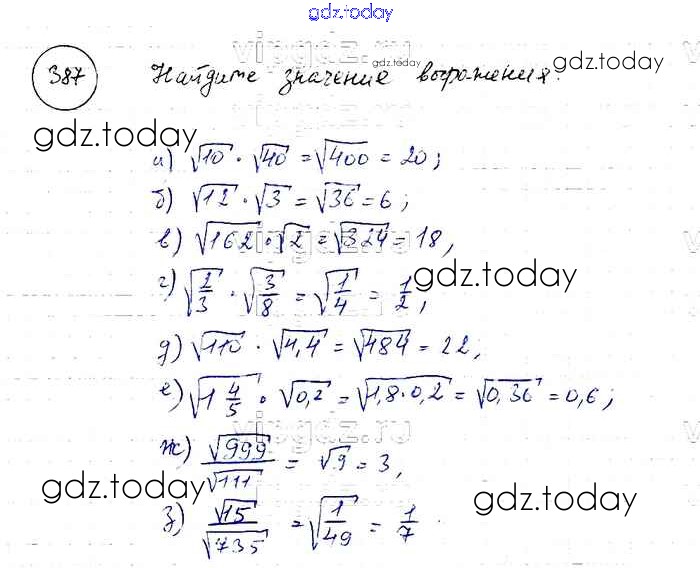 gdz.today
387 Найдите значение выражения.
gdz.today
gdz.today
gdz.today
а) √10 · √40 = √400 = 20;
б) √12 · √3 = √36 = 6;
в) √162 · √2 = √324 = 18,
г) √(2/3) · √(3/8) = √(1/4) = 1/2,
gdz.today
д) √110 · √4,4 = √484 = 22,
е) √(1 4/5) · √0,2 = √(1,8·0,2) = √0,36 = 0,6;
ж) √999/√111 = √9 = 3,
gdz.today
gdz.today
з) √15/√735 = √(1/49) = 1/7